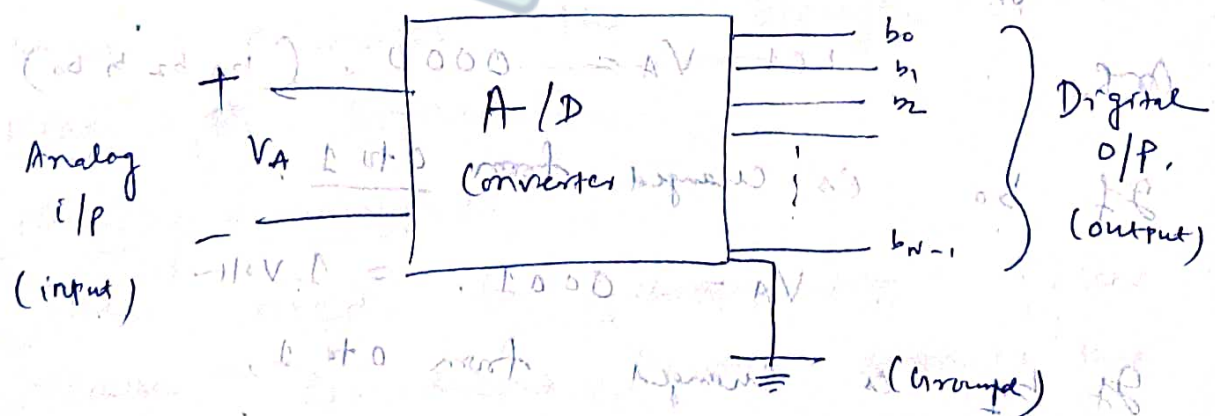 Analog
i/p
(input)
+
VA
-
A/D
Converter
b0
b1
b2
bN-1
Digital
O/P.
(output)
(Ground)